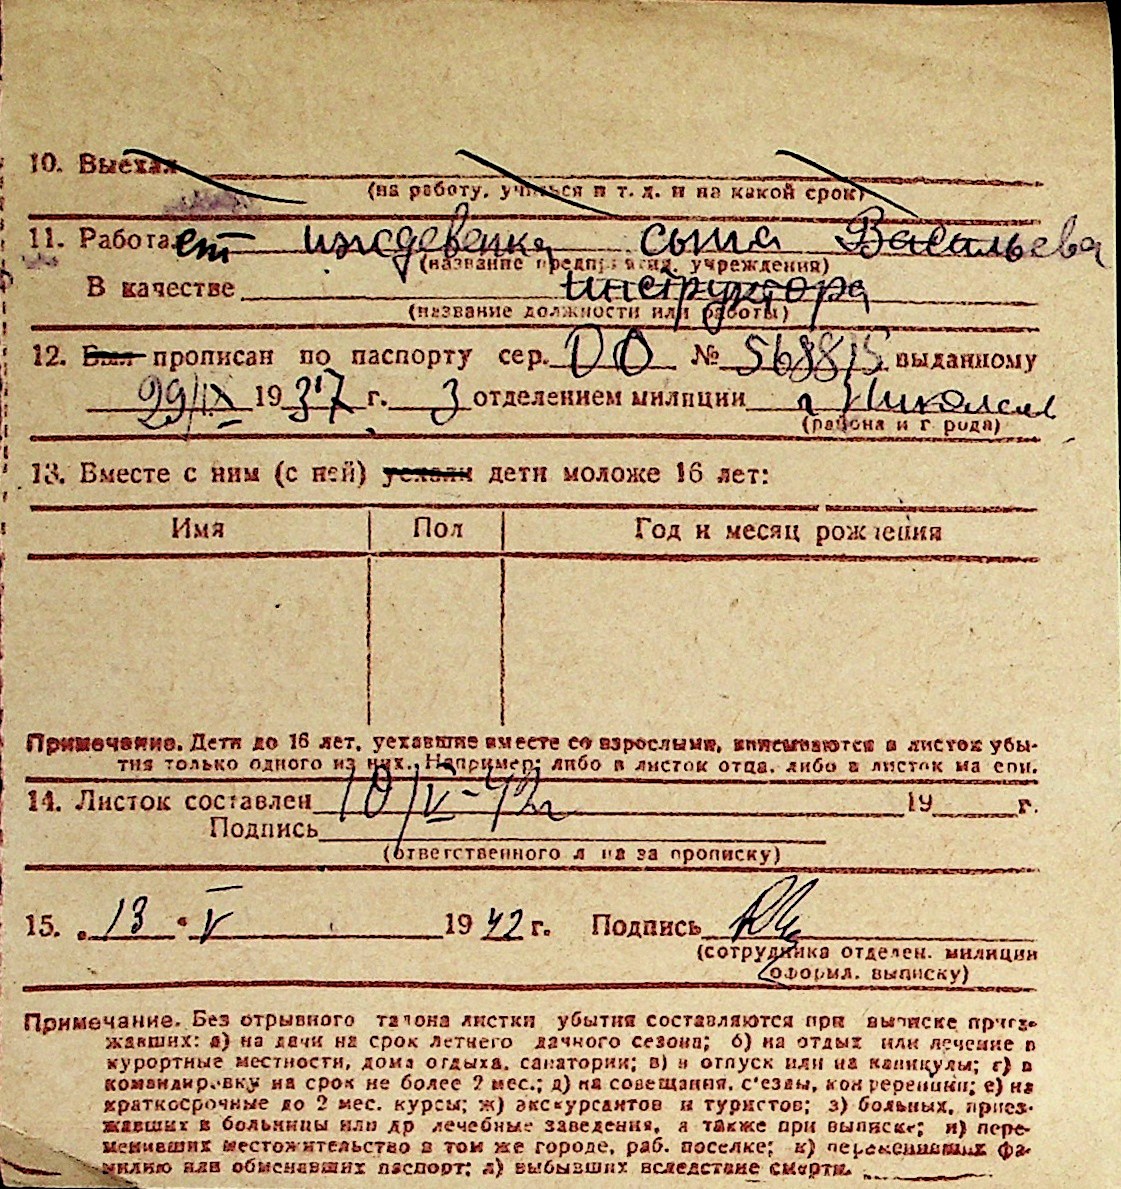 10. Выехал
(на работу, учиться и т. д. и на какой срок)
11. Работает иждевенка сына Васильева
(название предприятия, учреждения)
В качестве инструктора
(название должности или работы)
12. Был прописан по паспорту сер. ДО № 568815 выданному
29/IX 1937 г. 3 отделением милиции г.
(района и города)
13. Вместе с ним (с ней) уехали дети моложе 16 лет:
Имя Пол Год и месяц рождения
Примечание. Дети до 16 лет, уехавшие вместе со взрослыми, вписываются в листок убы-
тия только одного из них. Например: либо в листок отца, либо в листок матери.
14. Листок составлен 10/V-42г 19 г.
Подпись
(ответственного лица за прописку)
15. „13 " V 1942 г. Подпись
(сотрудника отделен. милиции
оформл. выписку)
Примечание. Без отрывного талона листки убытия составляются при выписке приез-
жавших: а) на дачи на срок летнего дачного сезона; б) на отдых или лечение в
курортные местности, дома отдыха, санатории; в) в отпуск или на каникулы; г) в
командировку на срок не более 2 мес.; д) на совещания, с'езды, конференции; е) на
краткосрочные до 2 мес. курсы; ж) экскурсантов и туристов; з) больных, приез-
жавших в больницы или др лечебные заведения, а также при выписке; и) пере-
менивших местожительство в том же городе, раб. поселке; к) переменивших фа-
милию или обменявших паспорт; л) выбывших вследствие смерти.